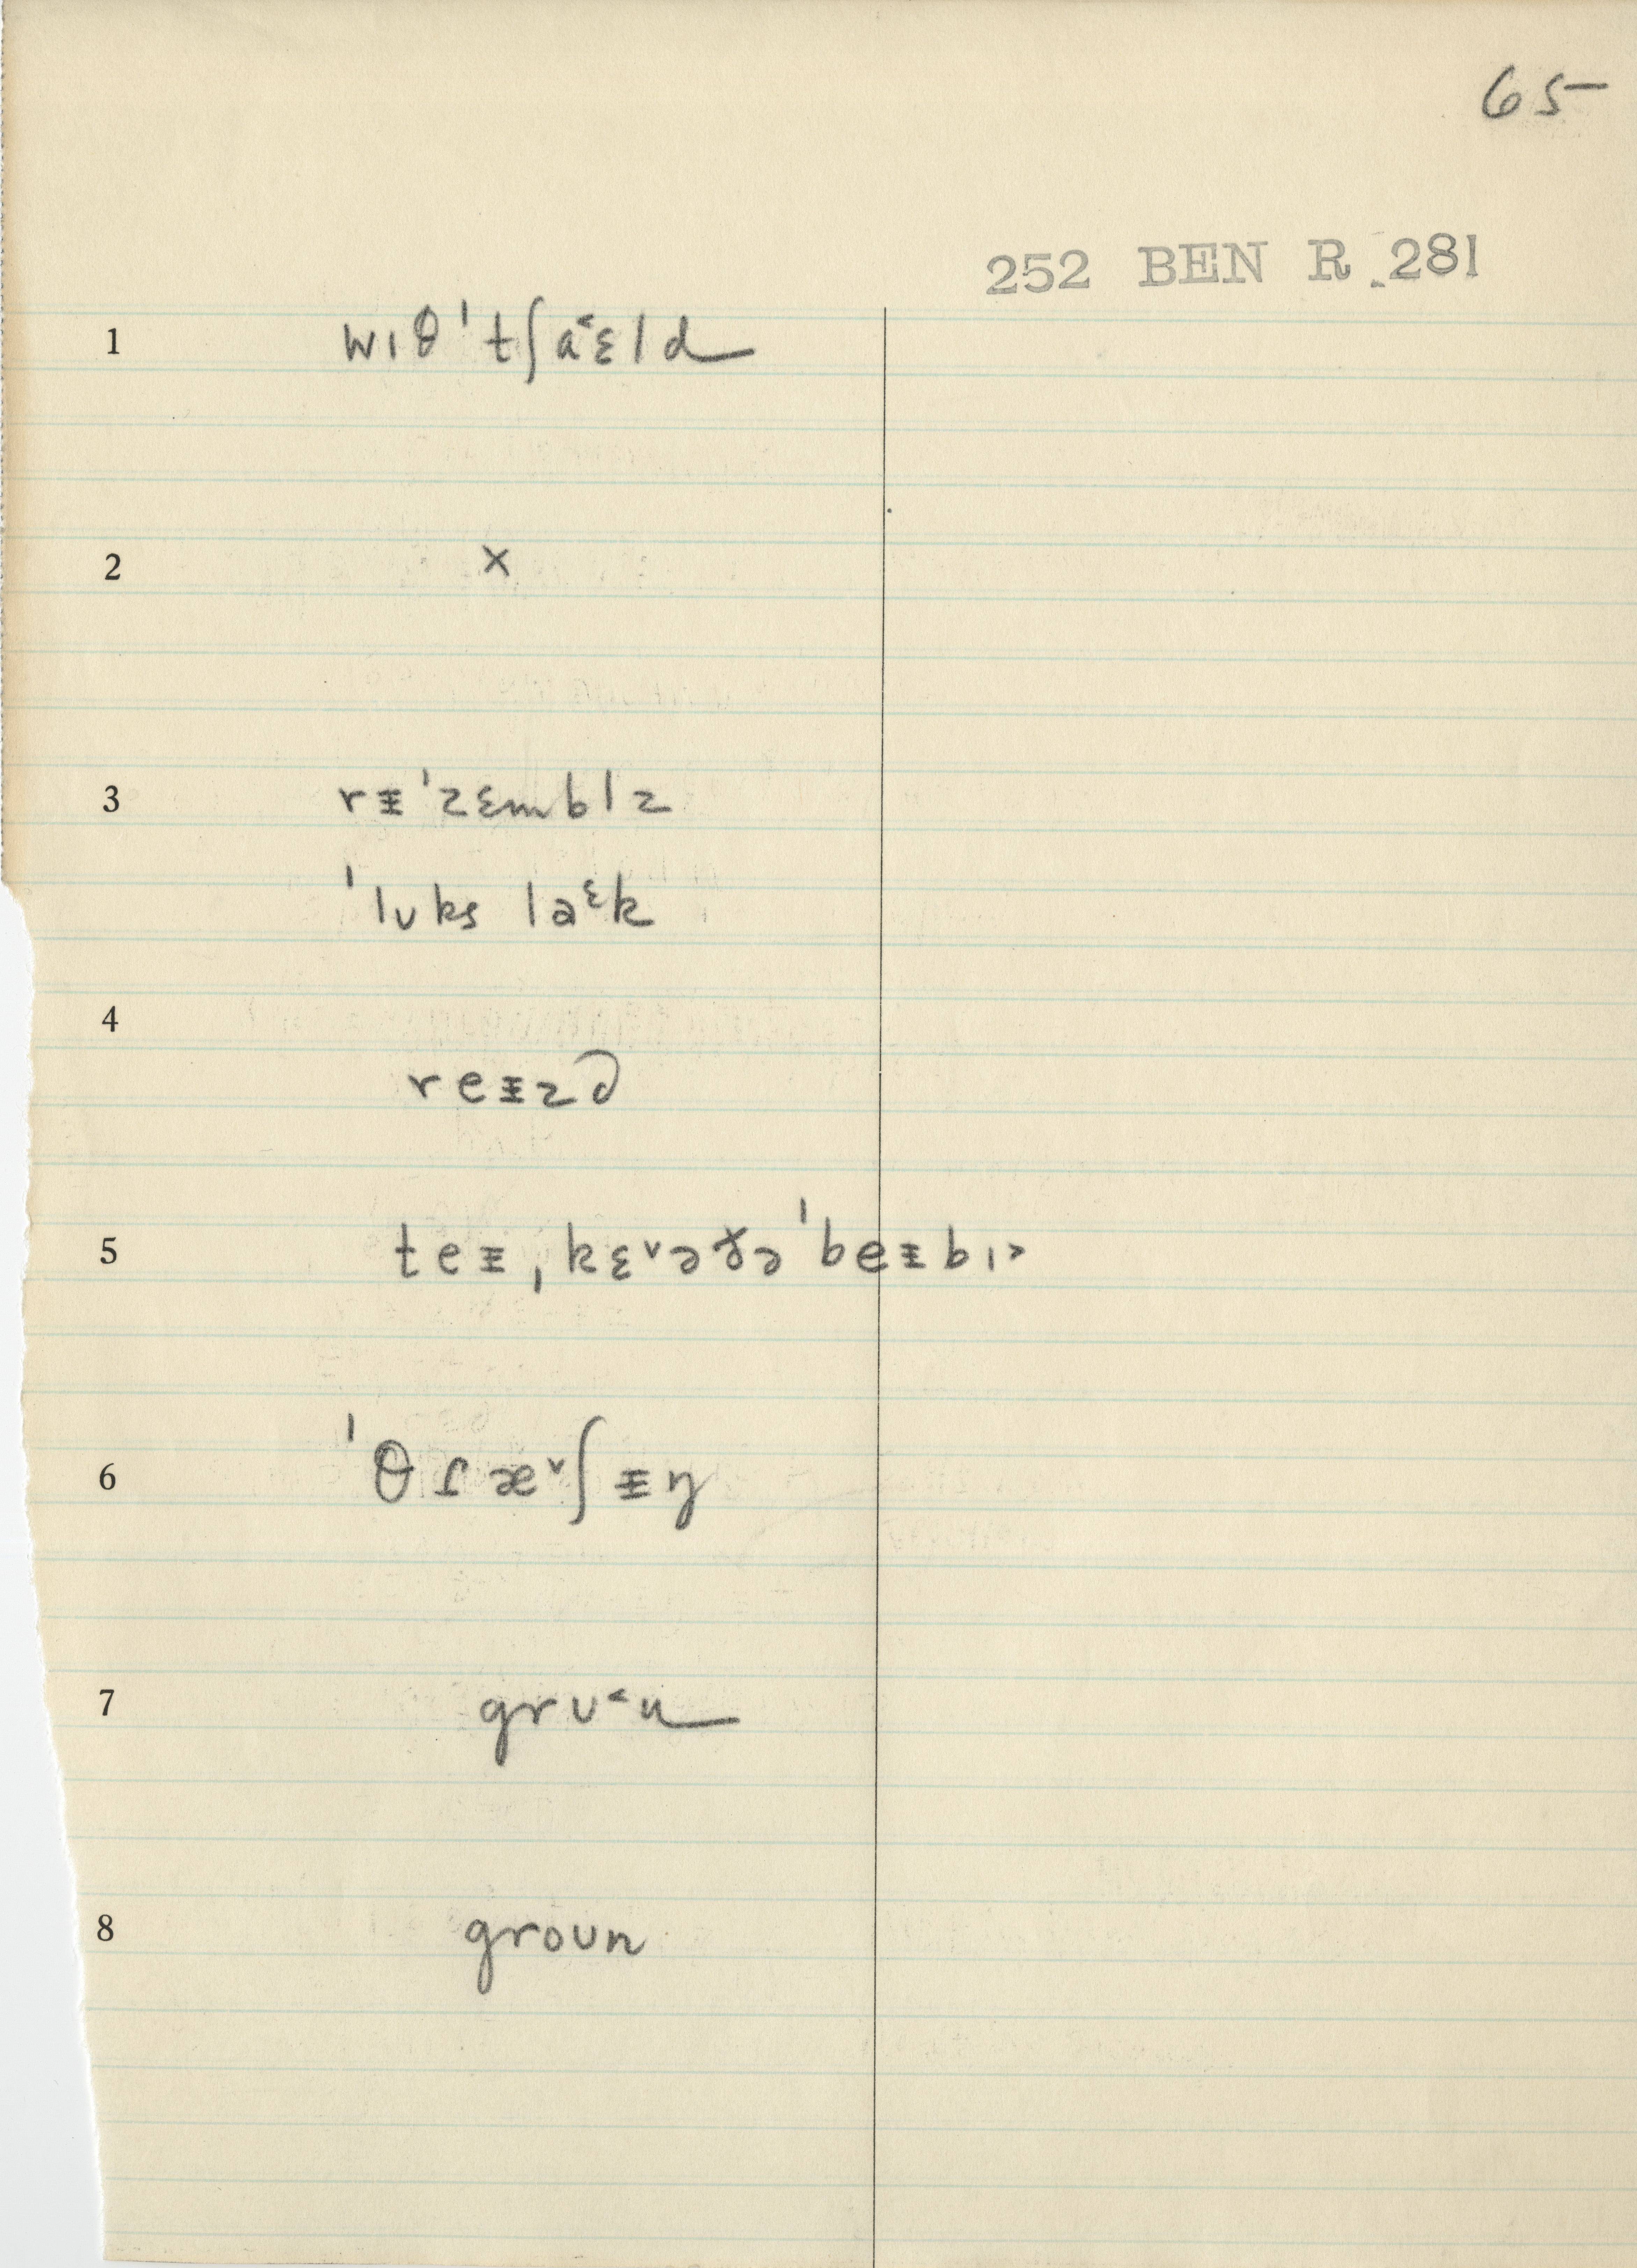 65
252 BEN R 281
1 wɪθ ˈtʃa˂ɛld
2 x
3 rᵻˈzɛmblz
ˈlʊks laᵋk
4
reᵻzd
5 teᵻˌkɛ˅əɤəˈbeᵻbɪ˃
6 ˈθɾæ˅ʃᵻŋ
7 grʊ˂u
8 groun